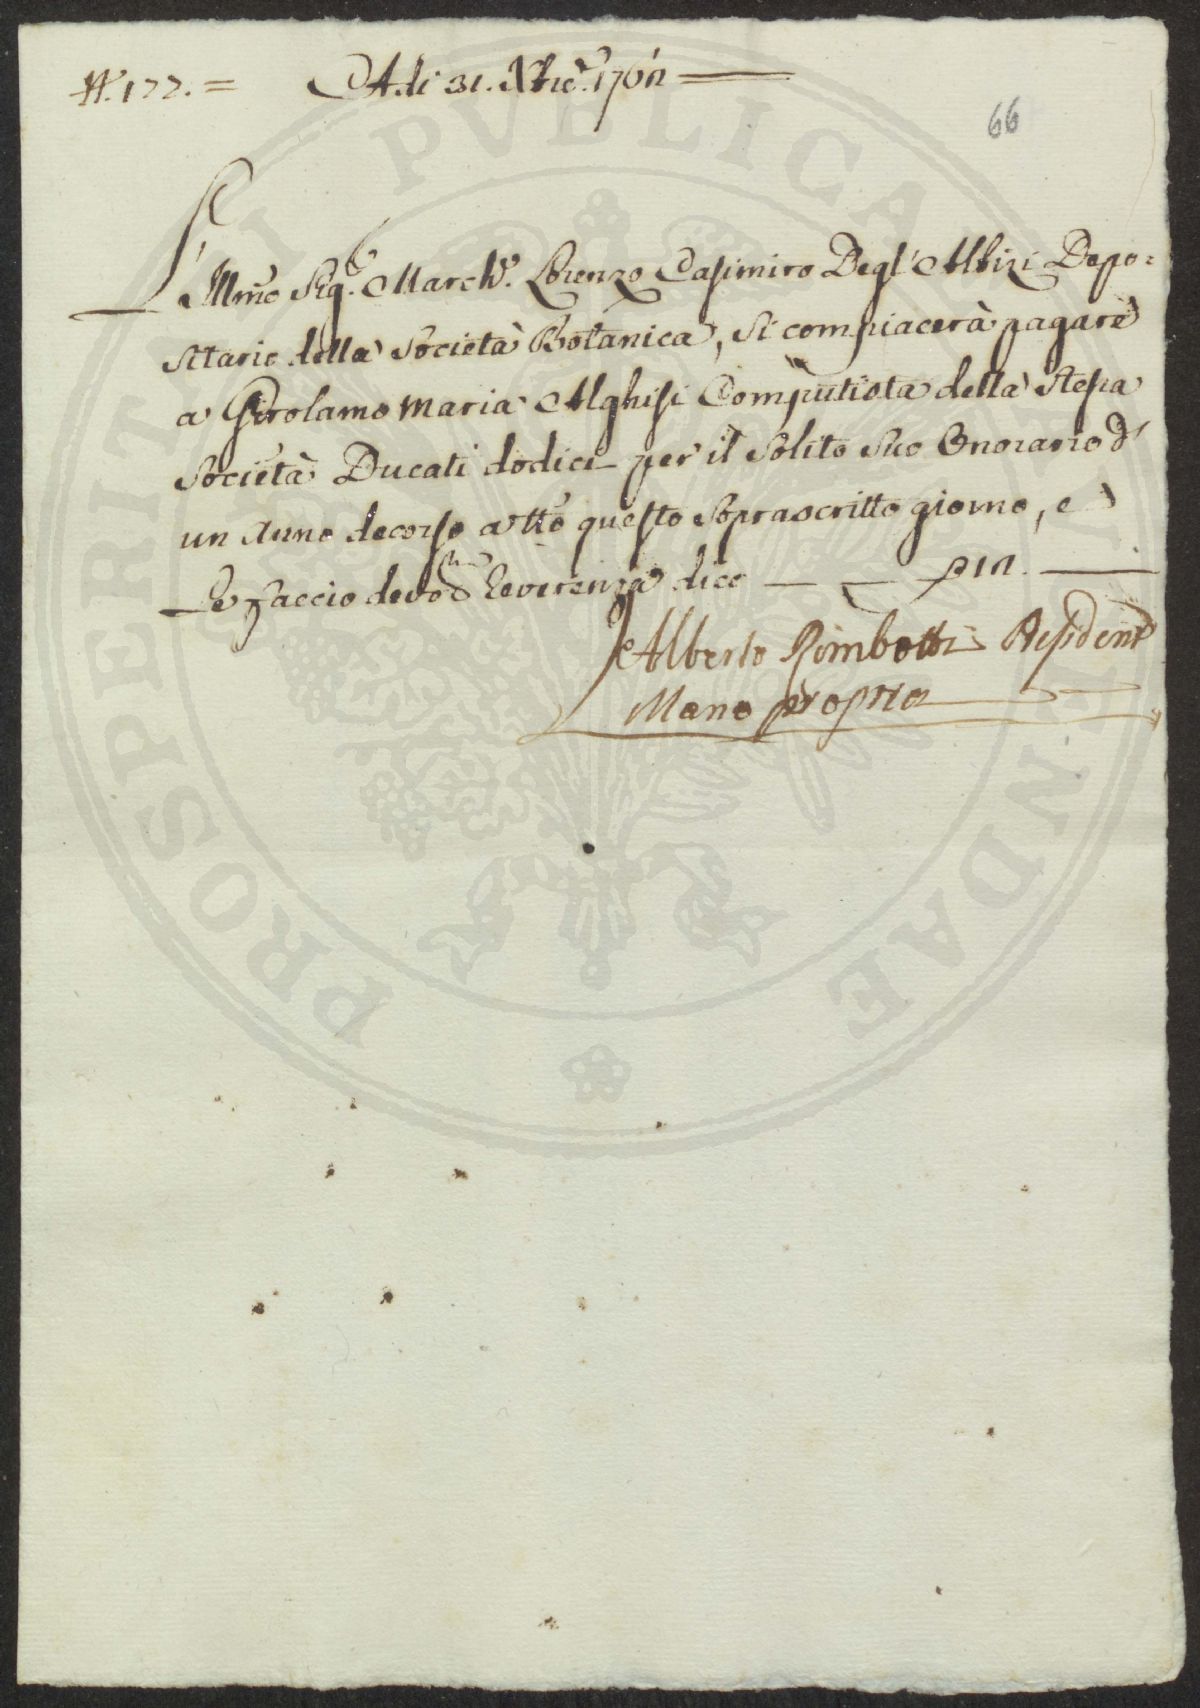 N. 177. = Adi 31. Xbrē. 1762
66
Illmo Sigr. March. Lorenzo Casimiro Degl' Albizi Depo=
sitario della Società Botanica, si compiacerà pagare
a Girolamo Maria Alghisi Computista della stessa
Società Ducati dodici per il solito suo Onorario d'
un Anno decorso a tto questo soprascritto giorno, e
Le faccio devotma reverenza dico — — 12. —
Io Alberto Rimbotti Presidente
Mano propria
PROSPERITATI PVBLICAE AVGENDAE